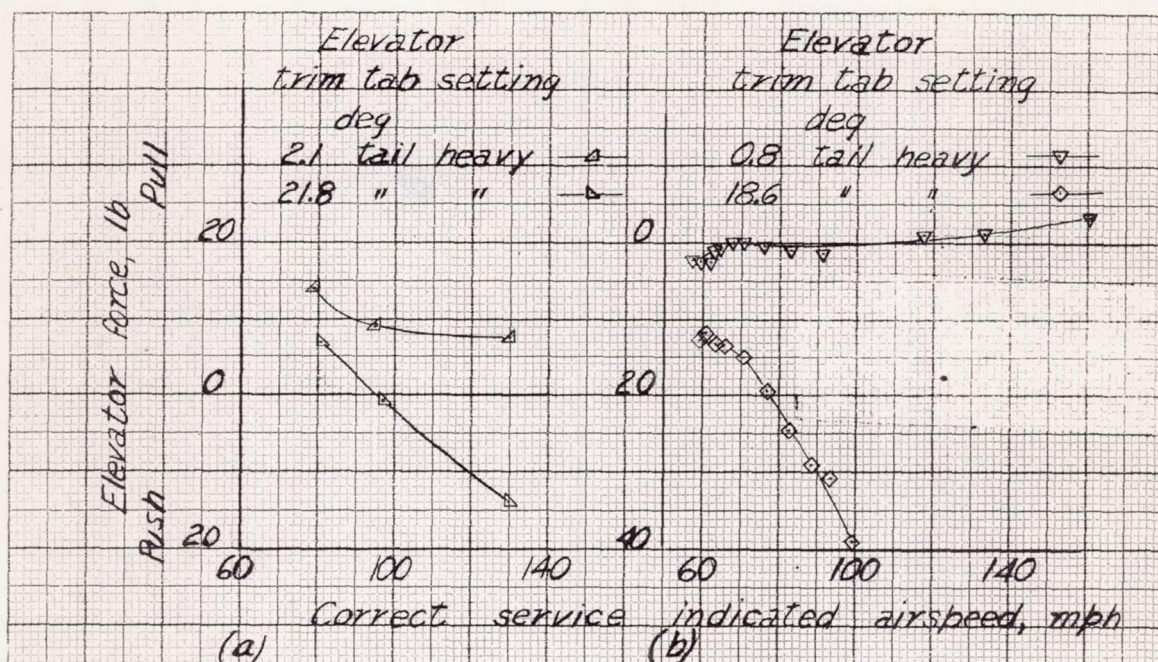 Elevator
trim tab setting
deg
2.1 tail heavy
21.8 " "
Elevator
trim tab setting
deg
0.8 tail heavy
18.6 " "
Elevator force, lb
Pull
Push
20
0
20
0
20
40
60 100 140
60 100 140
Correct service indicated airspeed, mph
(a) (b)